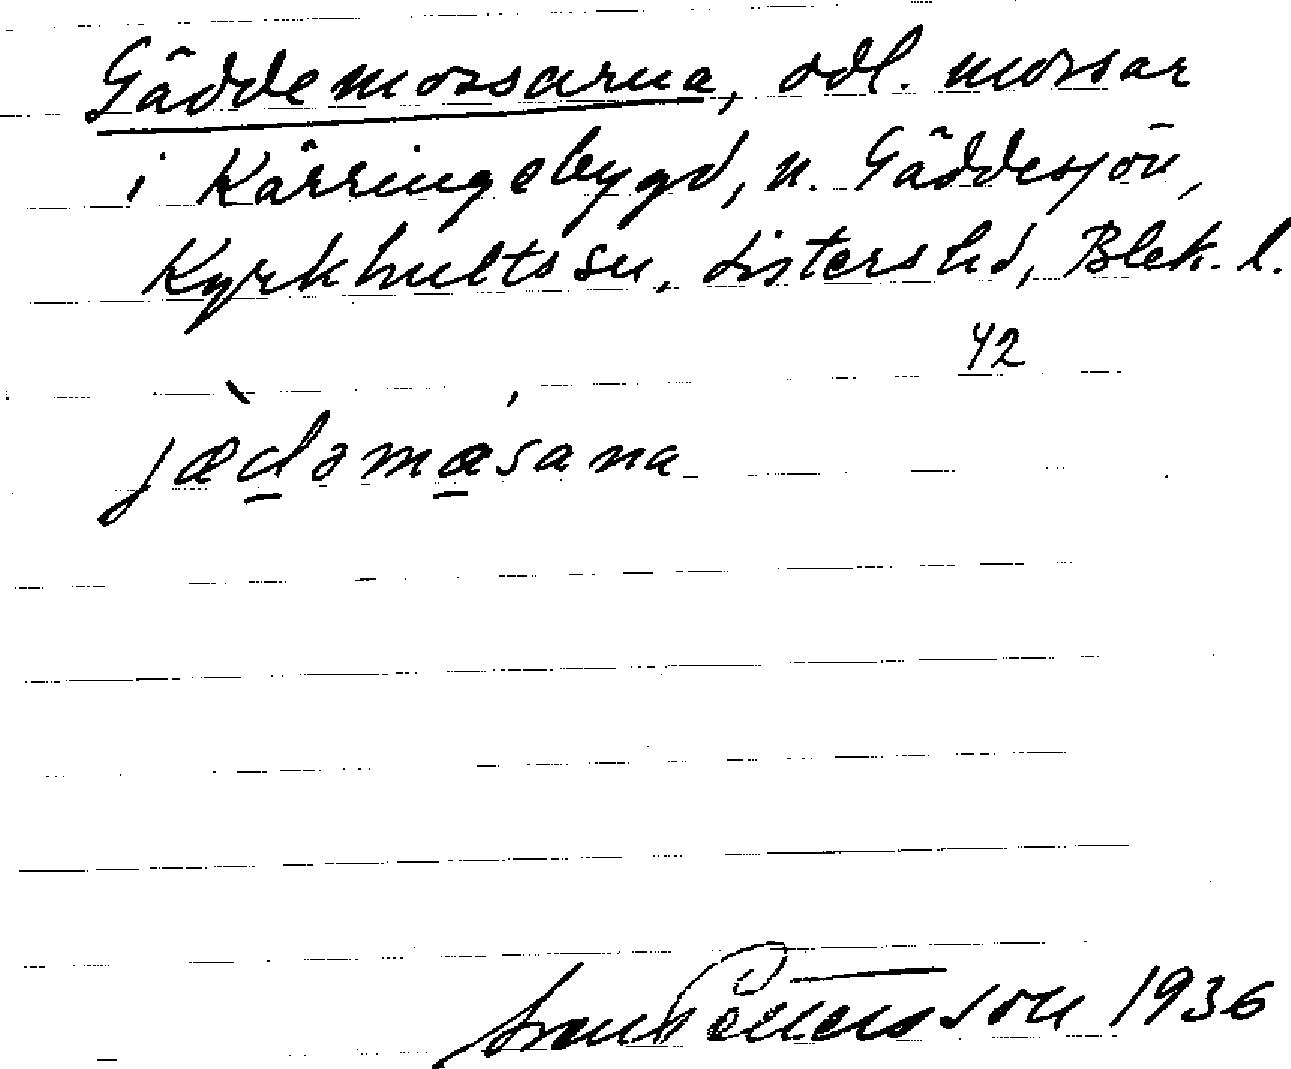 Gäddemossarna, odl. mossar
i Kärringebygd, n. Gäddesjön,
Kyrkhults sn, Listers hd, Blek. l.
42
jæ̀dəmásana
Pettersson 1936